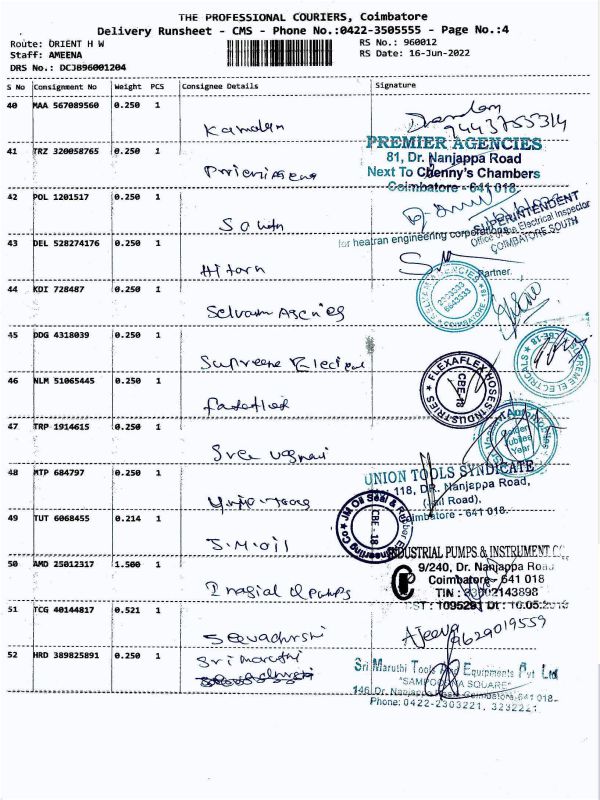 THE PROFESSIONAL COURIERS, Coimbatore
Delivery Runsheet - CMS - Phone No.:0422-3505555 - Page No.:4
Route: ORIENT H W
RS No.: 960012
Staff: AMEENA
RS Date: 16-Jun-2022
DRS No.: DCJB96001204
S No Consignment No Weight PCS Consignee Details Signature
40 MAA 567089560 0.250 1
Kamalam
9443755314
PREMIER AGENCIES
41 TRZ 320058765 0.250 1
81, Dr. Nanjappa Road
Next To Chenny's Chambers
Coimbatore - 641 018.
42 POL 1201517 0.250 1
South
SUPERINTENDENT
Office of the Electrical Inspector
COIMBATORE SOUTH
for heatran engineering corporation
43 DEL 528274176 0.250 1
Hitarn
Partner
44 KDI 728487 0.250 1
Selvam Agcnies
SELVAM AGENCIES
COIMBATORE-18
45 DDG 4318039 0.250 1
Supreeme Elecical
SUPREME ELECTRICALS CBE-18
46 NLM 51065445 0.250 1
FLEXAFLEX HOSES INDUSTRIES
CBE-18
47 TRP 1914615 0.250 1
Sree
Golden
Jubilee
Year
48 MTP 684797 0.250 1
UNION TOOLS SYNDICATE
118, DR. Nanjappa Road,
(Jail Road),
Coimbatore - 641 018.
49 TUT 6068455 0.214 1
J.M.oil
JM Oil Seal & Rubber Engineering Co
CBE - 18
50 AMD 25012317 1.500 1
INDUSTRIAL PUMPS & INSTRUMENT CO
9/240, Dr. Nanjappa Road
Coimbatore - 641 018
TIN : 33002143898
CST : 1095291 Dt : 10.05.2010
51 TCG 40144817 0.521 1
Seevadurshi
AJeeva
9629019559
52 HRD 389825891 0.250 1
Sri maruthi
Sri Maruthi Tools And Equipments Pvt Ltd
"SAMPOORNA SQUARE"
146, Dr. Nanjappa Road, Coimbatore-641 018.
Phone: 0422-2303221, 3232221